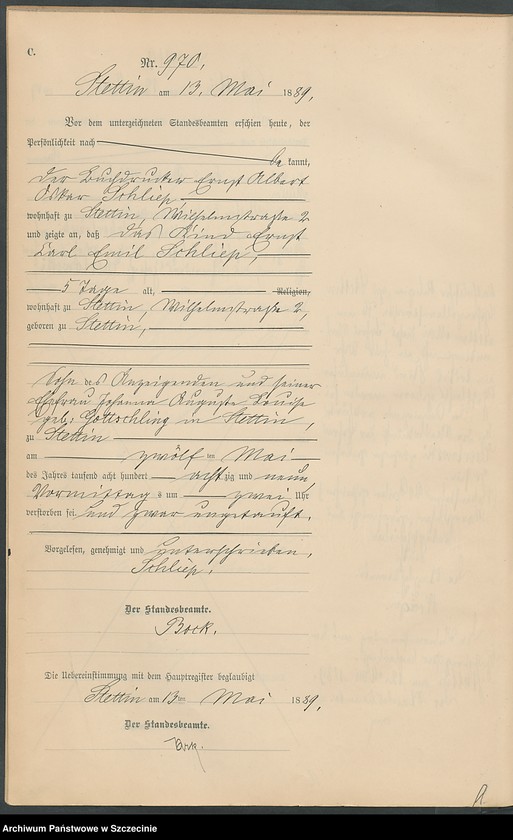 C.
Nr. 970.
Stettin am 13. Mai 1889.
Vor dem unterzeichneten Standesbeamten erschien heute, der
Persönlichkeit nach
be kannt,
der Buchdrucker Ernst Albert
Oskar Schliep,
wohnhaft zu Stettin, Wilhelmstraße 2
und zeigte an, daß das Kind Ernst
Carl Emil Schliep,
5 Tage alt, Religion,
wohnhaft zu Stettin, Wilhelmstraße 2,
geboren zu Stettin,
Sohn des Anzeigenden und seiner
Ehefrau Johanna Auguste Louise
geb. Gottschling in Stettin,
zu Stettin
am zwölf ten Mai
des Jahres tausend acht hundert achtzig und neun,
Vormittags um zwei Uhr
verstorben sei und zwar ungetauft.
Vorgelesen, genehmigt und unterschrieben.
Schliep.
Der Standesbeamte.
Bock.
Die Uebereinstimmung mit dem Hauptregister beglaubigt
Stettin am 13ten Mai 1889.
Der Standesbeamte.
Bock.
Archiwum Państwowe w Szczecinie